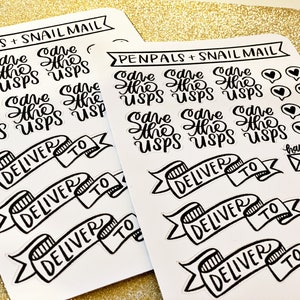 PENPALS + SNAIL MAIL
Save the USPS Save the USPS Save the USPS
Save the USPS Save the USPS Save the USPS
DELIVER TO
DELIVER TO
DELIVER TO
PENPALS + SNAIL MAIL
Save the USPS Save the USPS Save the USPS
Save the USPS Save the USPS Save the USPS
DELIVER TO
DELIVER TO
DELIVER TO